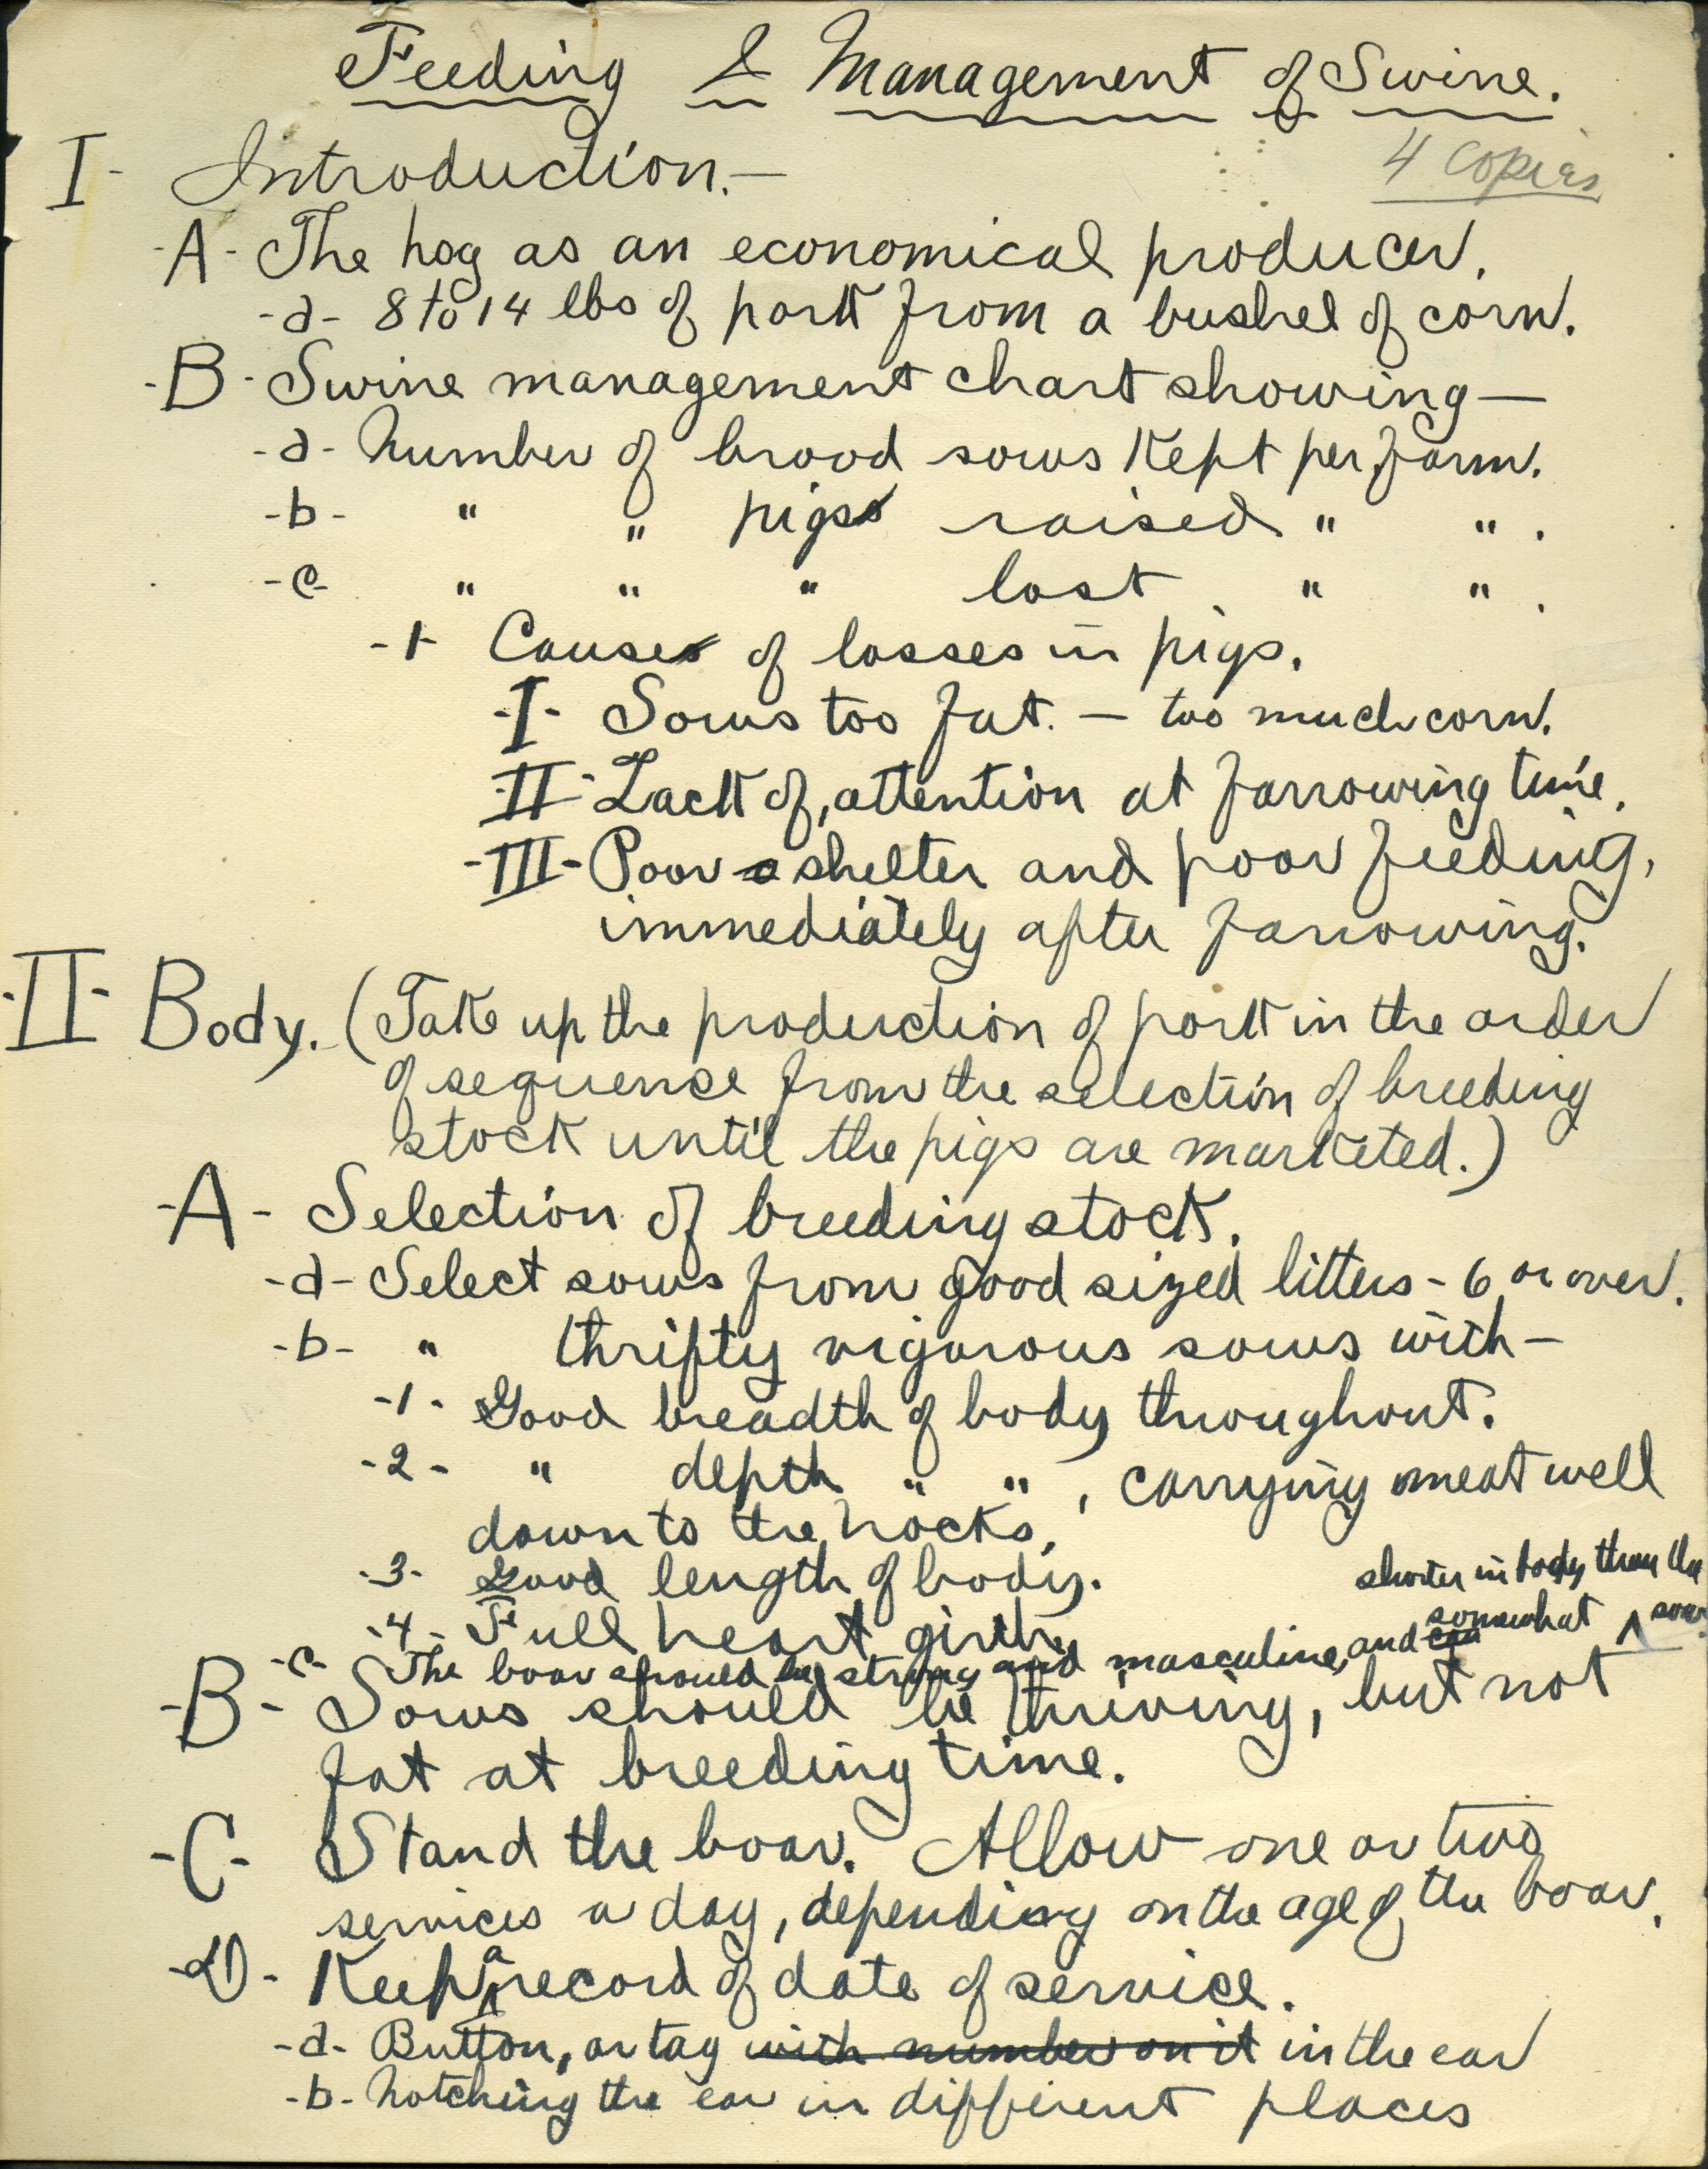 Feeding & Management of Swine.
4 copies
I- Introduction.-
-A- The hog as an economical producer.
-a- 8 to 14 lbs of pork from a bushel of corn.
-B- Swine management chart showing—
-a- Number of brood sows kept per farm.
-b- " " pigs raised " " .
-c- " " " lost " " .
-1- Causes of losses in pigs.
-I- Sows too fat. — too much corn.
-II- Lack of, attention at farrowing time.
-III- Poor shelter and poor feeding,
immediately after farrowing.
-II- Body. (Take up the production of pork in the order
of sequence from the selection of breeding
stock until the pigs are marketed.)
-A- Selection of breeding stock.
-a- Select sows from good sized litters - 6 or over.
-b- " thrifty vigorous sows with —
-1- Good breadth of body throughout.
-2- " depth " " , carrying meat well
down to the hocks.
-3- Good length of body.
-4- Full heart girth.
shorter in body than the
-c- The boar should be strong and masculine, and somewhat ^ sow.
-B- Sows should be thriving, but not
fat at breeding time.
-C- Stand the boar. Allow one or two
services a day, depending on the age of the boar.
-D- Keep a record of date of service.
-a- Button, or tag with number on it in the ear
-b- Notching the ear in different places